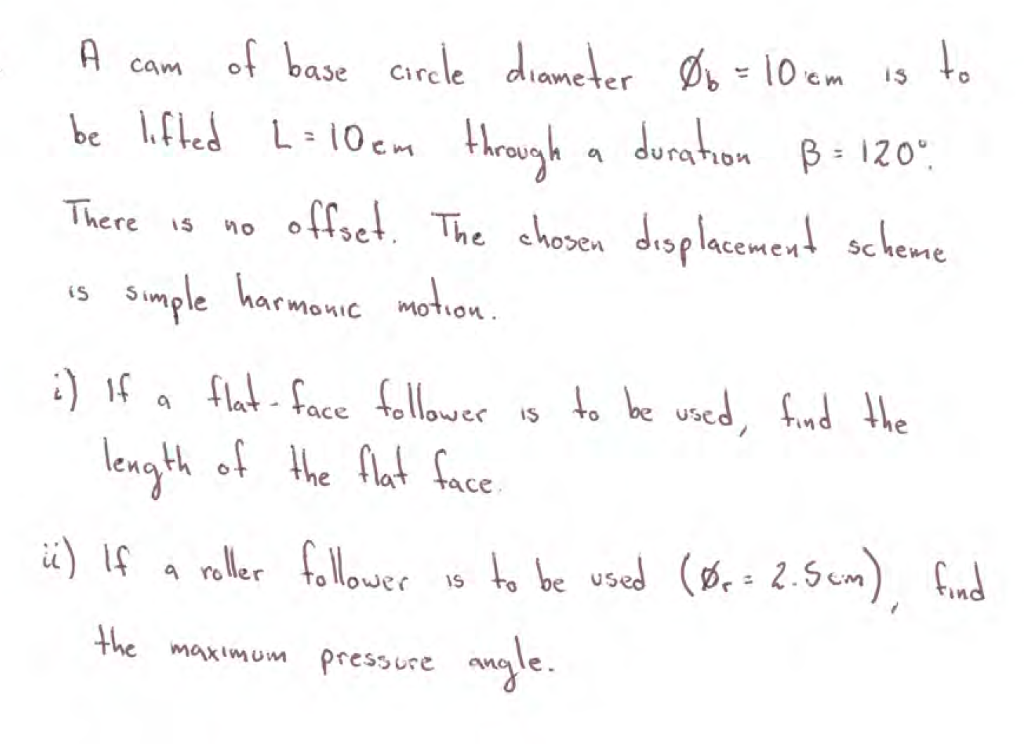 A cam of base circle diameter Øb = 10 cm is to
be lifted L = 10 cm through a duration β = 120°.
There is no offset. The chosen displacement scheme
is simple harmonic motion.
i) If a flat-face follower is to be used, find the
length of the flat face.
ii) If a roller follower is to be used (Ør = 2.5 cm), find
the maximum pressure angle.